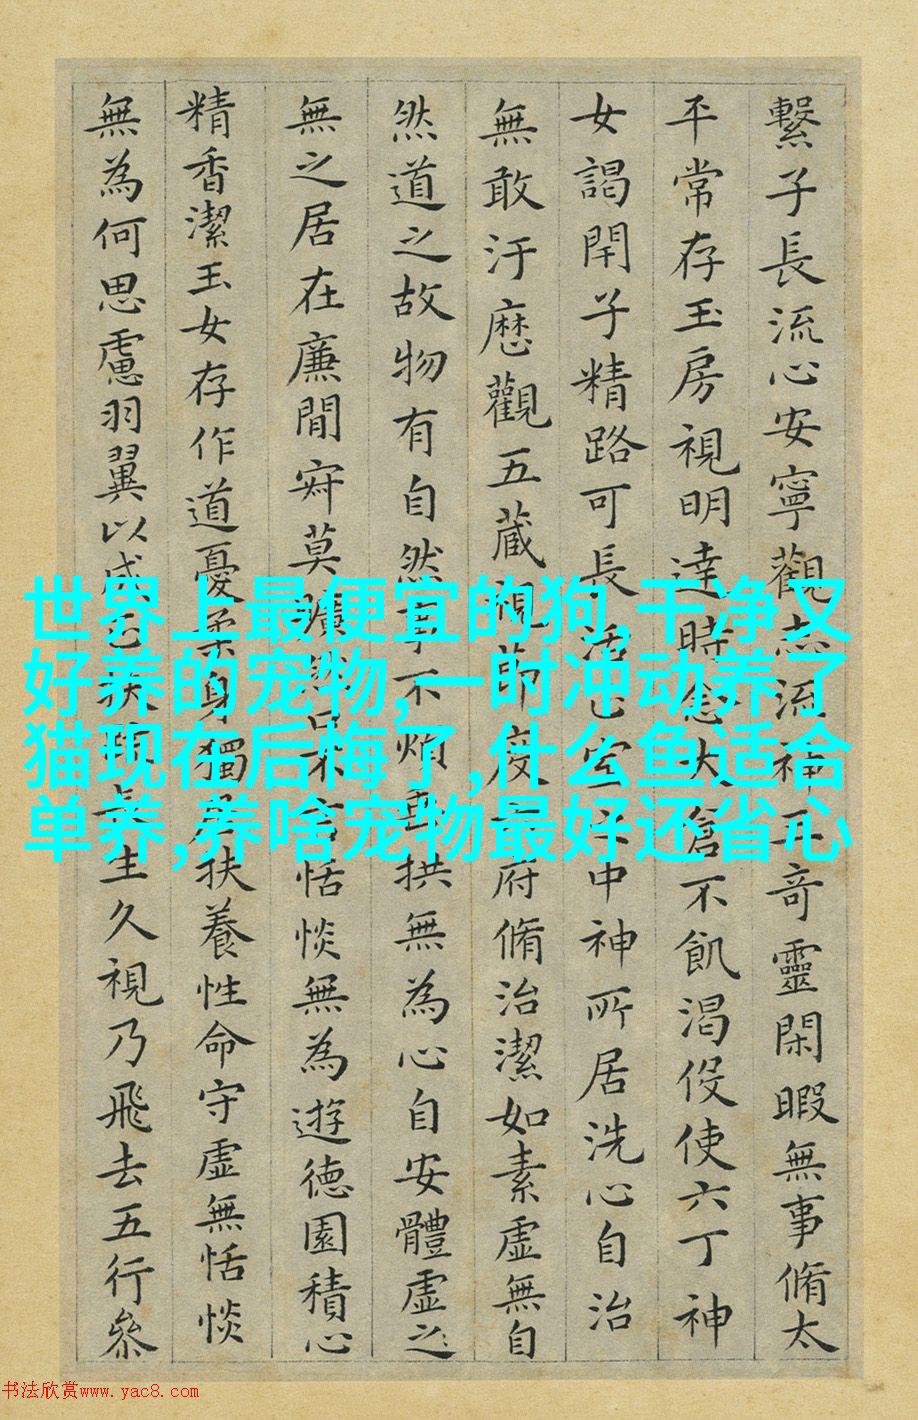 繫子長流心安寧觀志流神三奇靈閑暇無事脩太
平常存玉房視明達時念大倉不飢渴役使六丁神
女謁閇子精路可長活正室之中神所居洗心自治
無敢汙歷觀五藏視節度六府脩治潔如素虛無自
然道之故物有自然事不煩垂拱無為心自安體虛之
無之居在廉間寂莫曠然口不言恬惔無為遊德園積心
精香潔玉女存作道憂柔身獨居扶養性命守虛無恬惔
無為何思慮羽翼以成正扶疏長生久視乃飛去五行參
世界上最便宜的狗,干净又
好养的宠物,一时冲动养了
猫现在后悔了,什么鱼适合
单养,养啥宠物最好还省心
书法欣赏www.yac8.com